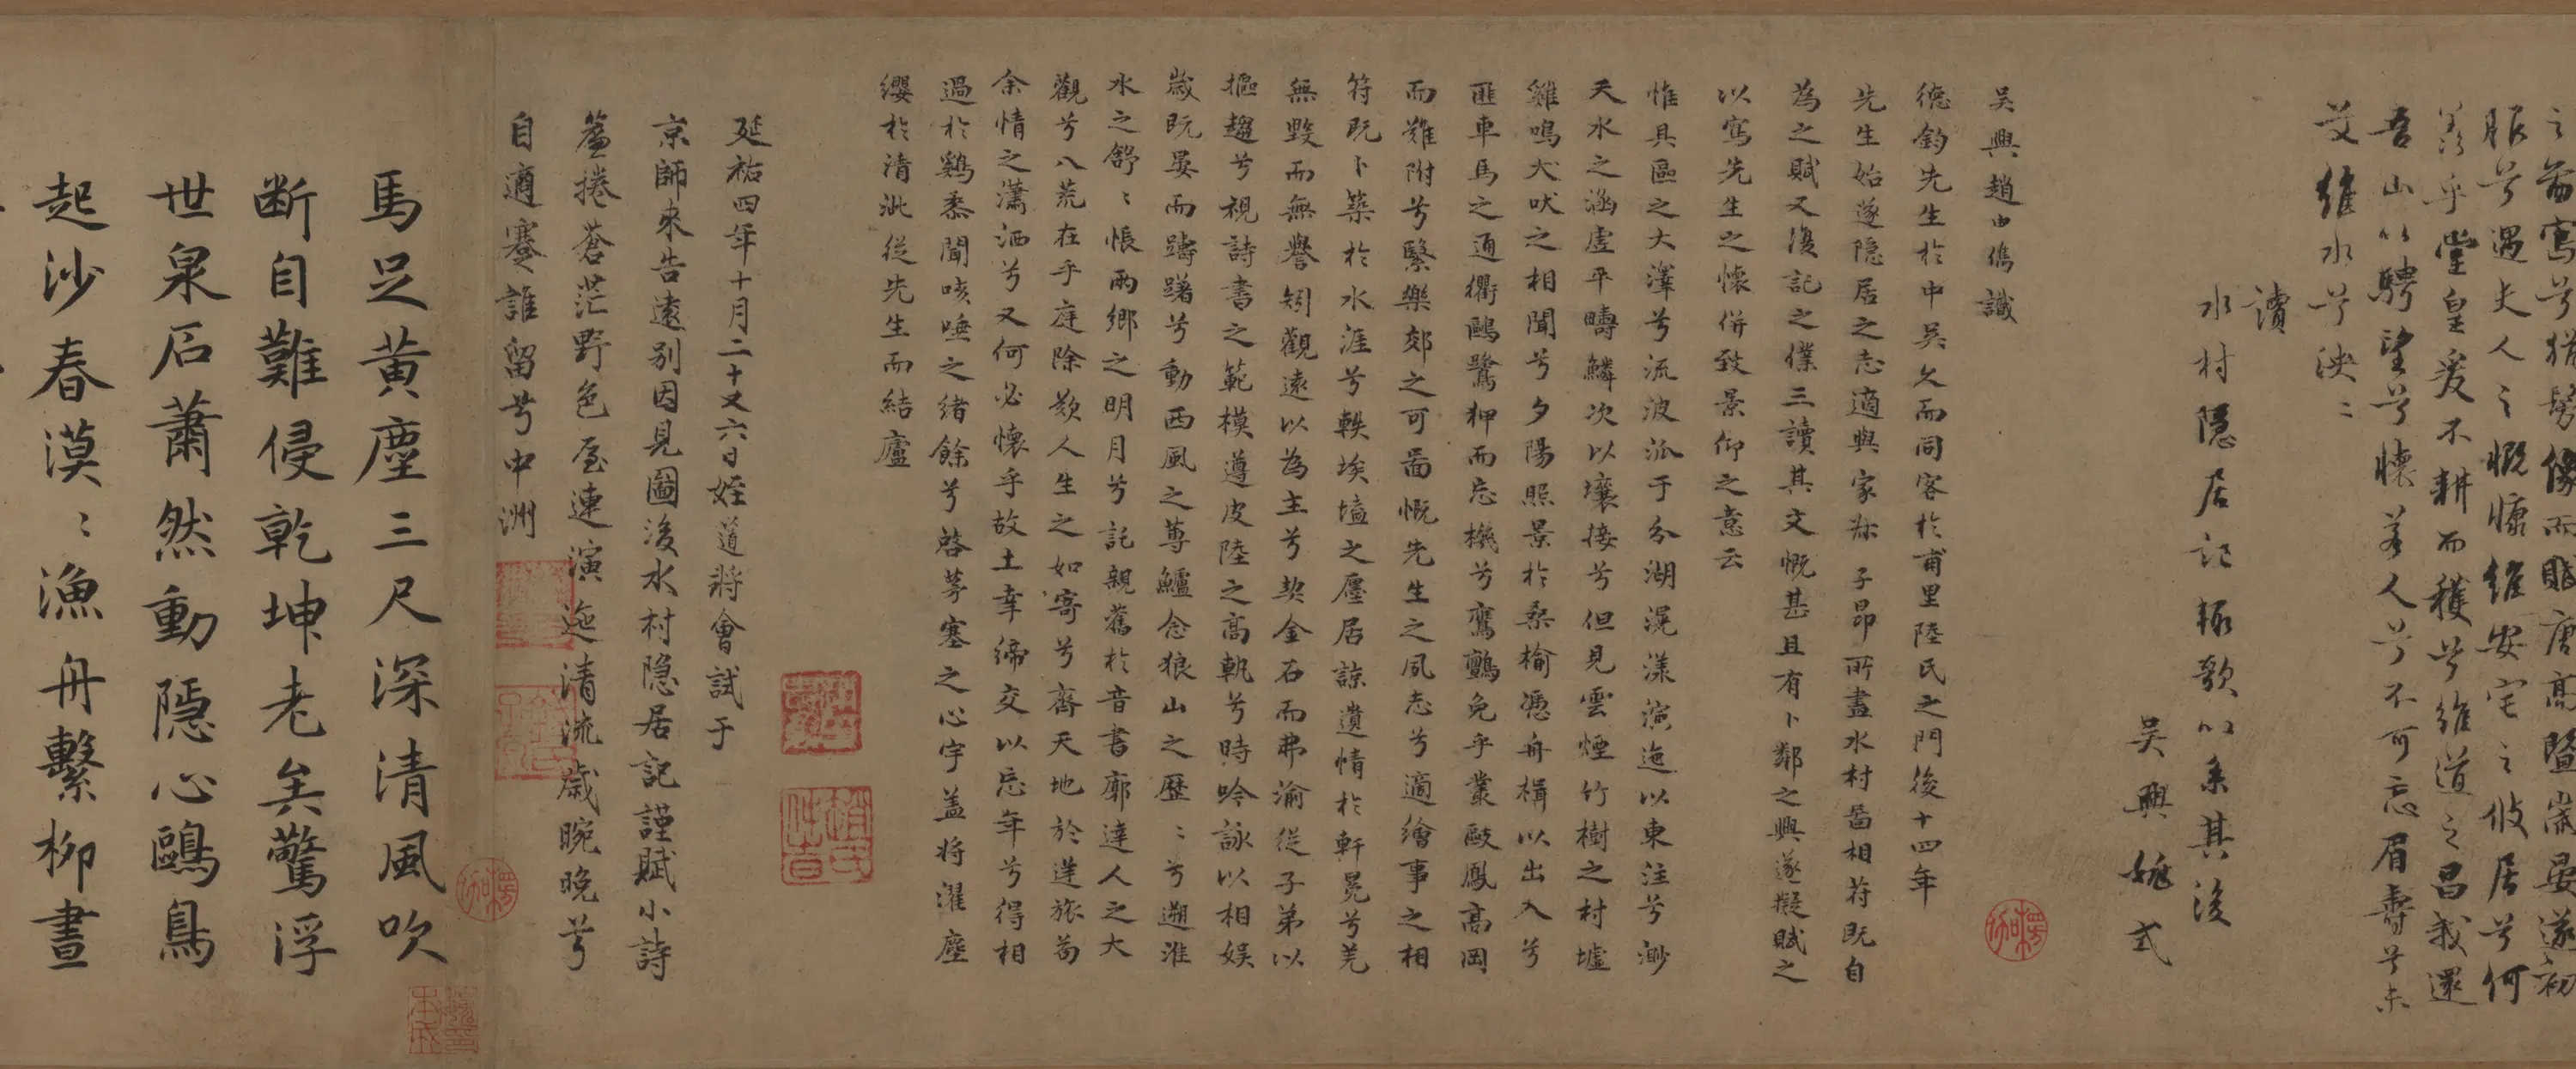 之啚寫兮猶髣像而賜唐高暨崇晏遂初
服兮遇夫人之慨慷維安宅之攸居兮何
羨乎堂皇爰不耕而穫兮維道之昌我還
吾山以騁望兮懷若人兮不可忘眉壽兮未
艾維水兮泱〻
讀
水村隱居記極歌以系其後
吳興姚式
吳興趙由儁識
德鈞先生於中吳久而同客於甫里陸氏之門後十四年
先生始遂隱居之志適與家叔子昂所畫水村啚相符既自
為之賦又復記之僕三讀其文慨甚且有卜鄰之興遂擬賦之
以寫先生之懷併致景仰之意云
惟具區之大澤兮流波泒于分湖滉漾演迤以東注兮渺
天水之涵虛平疇鱗次以壤接兮但見雲煙竹樹之村墟
雞鳴犬吠之相聞兮夕陽照景於桑榆憑舟楫以出入兮
匪車馬之通衢鷗鷺狎而忘機兮鷹鸇免乎叢敺鳳高岡
而難附兮繄樂郊之可啚慨先生之夙志兮適繪事之相
符既卜築於水涯兮軼埃壒之廛居諒遺情於軒冕兮羌
無毀而無譽矧觀遠以為主兮契金石而弗渝從子弟以
摳趨兮視詩書之範模遵皮陸之高軌兮時吟詠以相娛
歲既晏而躊躇兮動西風之蓴鱸念狼山之歷〻兮遡淮
水之舒〻悵兩鄉之明月兮託親舊於音書廓達人之大
觀兮八荒在乎庭除歎人生之如寄兮齊天地於蘧旅苟
余情之瀟洒兮又何必懷乎故土幸締交以忘年兮得相
過於鷄黍聞咳唾之緒餘兮啓茅塞之心宇蓋將濯塵
纓於清泚從先生而結廬
延祐四年十月二十又六日姪道將會試于
京師來告遠別因見圖後水村隱居記謹賦小詩
簷捲蒼茫野色屋連演迤清流歲晼晚兮
自適蹇誰留兮中洲
馬足黃塵三尺深清風吹
斷自難侵乾坤老矣驚浮
世泉石蕭然動隱心鷗鳥
起沙春漠〻漁舟繫柳晝